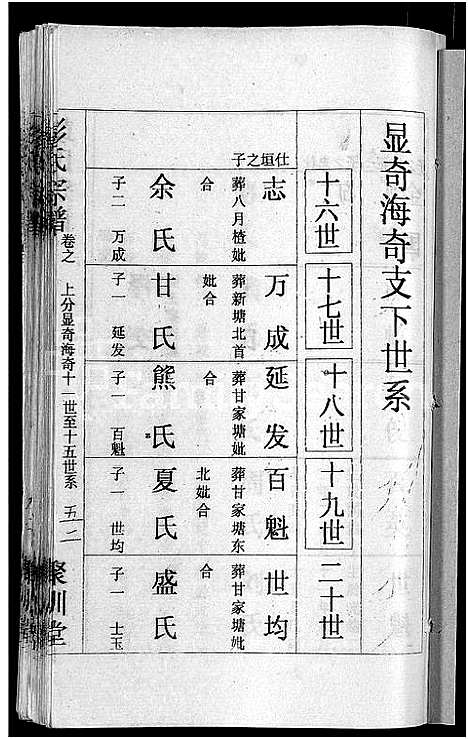 显奇海奇支下世系
十六世
十七世
十八世
十九世
二十世
仕垣之子
志
葬八月楂妣
合
余氏
子二 万成
万成
葬新塘北首
妣合
甘氏
子一 延发
延发
葬甘家塘妣
合
熊氏
子一 百魁
百魁
葬甘家塘东
北妣合
夏氏
子一 世均
世均
葬甘家塘妣
合
盛氏
子一 士玉
彭氏宗谱
卷之
上分显奇海奇十一世至十五世系
五二
聚训堂